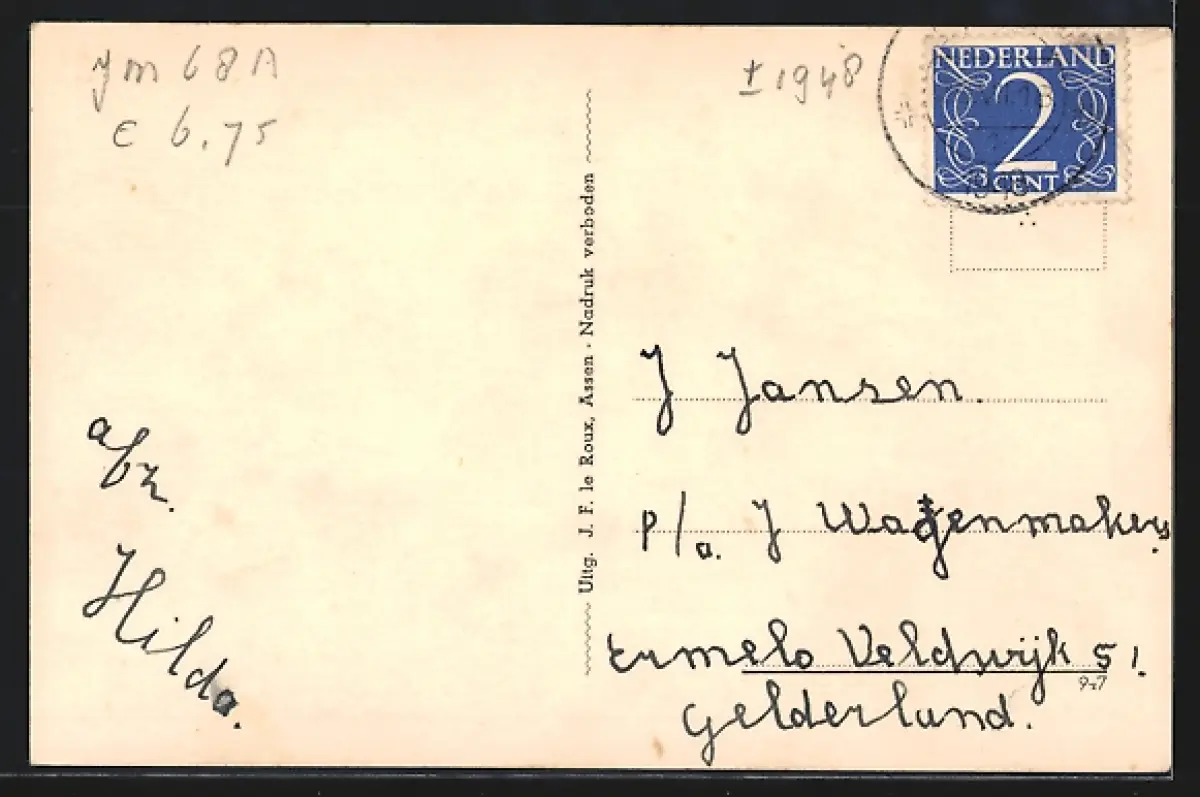 Jm 68A
€ 6.75
± 1948
NEDERLAND
2
CENT
Uitg. J. F. le Roux, Assen - Nadruk verboden
afz.
Hilda.
J Jansen.
p/a. J Wagenmakers
Ermelo Veldwijk 51.
927
Gelderland.